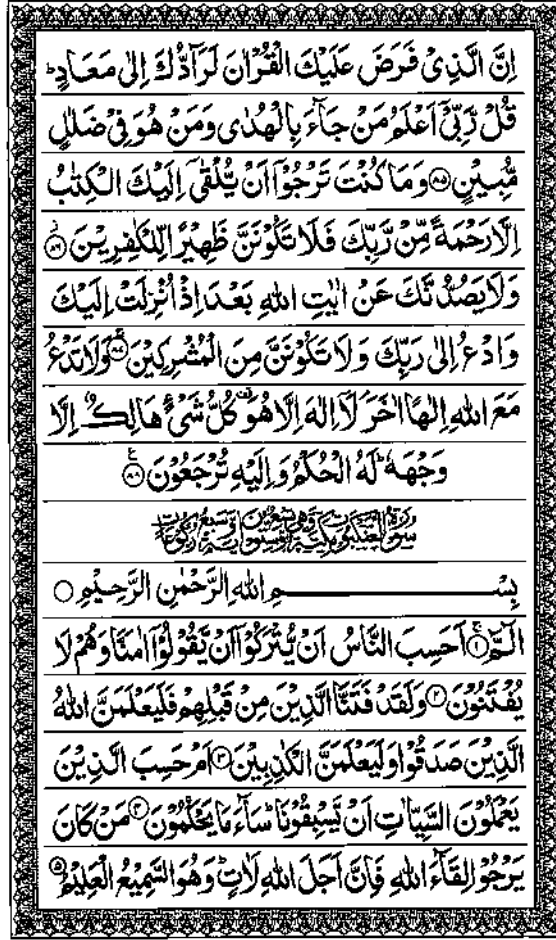 اِنَّ الَّذِیْ فَرَضَ عَلَیْكَ الْقُرْاٰنَ لَرَآدُّكَ اِلٰی مَعَادٍ ؕ
قُلْ رَّبِّیْۤ اَعْلَمُ مَنْ جَآءَ بِالْهُدٰی وَمَنْ هُوَ فِیْ ضَلٰلٍ
مُّبِیْنٍ ۝۸۵ وَمَا كُنْتَ تَرْجُوْۤا اَنْ یُّلْقٰۤی اِلَیْكَ الْكِتٰبُ
اِلَّا رَحْمَةً مِّنْ رَّبِّكَ فَلَا تَكُوْنَنَّ ظَهِیْرًا لِّلْكٰفِرِیْنَ ۝۸۶
وَلَا یَصُدُّنَّكَ عَنْ اٰیٰتِ اللّٰهِ بَعْدَ اِذْ اُنْزِلَتْ اِلَیْكَ
وَادْعُ اِلٰی رَبِّكَ وَلَا تَكُوْنَنَّ مِنَ الْمُشْرِكِیْنَ ۝۸۷ وَلَا تَدْعُ
مَعَ اللّٰهِ اِلٰهًا اٰخَرَ ۘ لَاۤ اِلٰهَ اِلَّا هُوَ ۫ كُلُّ شَیْءٍ هَالِكٌ اِلَّا
وَجْهَهٗ ؕ لَهُ الْحُكْمُ وَاِلَیْهِ تُرْجَعُوْنَ ۝۸۸
سورة العنكبوت مكية وهی تسع وستون اية وسبع ركوعات
بِسْمِ اللّٰهِ الرَّحْمٰنِ الرَّحِیْمِ ۝
الٓمّٓ ۝۱ اَحَسِبَ النَّاسُ اَنْ یُّتْرَكُوْۤا اَنْ یَّقُوْلُوْۤا اٰمَنَّا وَهُمْ لَا
یُفْتَنُوْنَ ۝۲ وَلَقَدْ فَتَنَّا الَّذِیْنَ مِنْ قَبْلِهِمْ فَلَیَعْلَمَنَّ اللّٰهُ
الَّذِیْنَ صَدَقُوْا وَلَیَعْلَمَنَّ الْكٰذِبِیْنَ ۝۳ اَمْ حَسِبَ الَّذِیْنَ
یَعْمَلُوْنَ السَّیِّاٰتِ اَنْ یَّسْبِقُوْنَا ؕ سَآءَ مَا یَحْكُمُوْنَ ۝۴ مَنْ كَانَ
یَرْجُوْا لِقَآءَ اللّٰهِ فَاِنَّ اَجَلَ اللّٰهِ لَاٰتٍ ؕ وَهُوَ السَّمِیْعُ الْعَلِیْمُ ۝۵